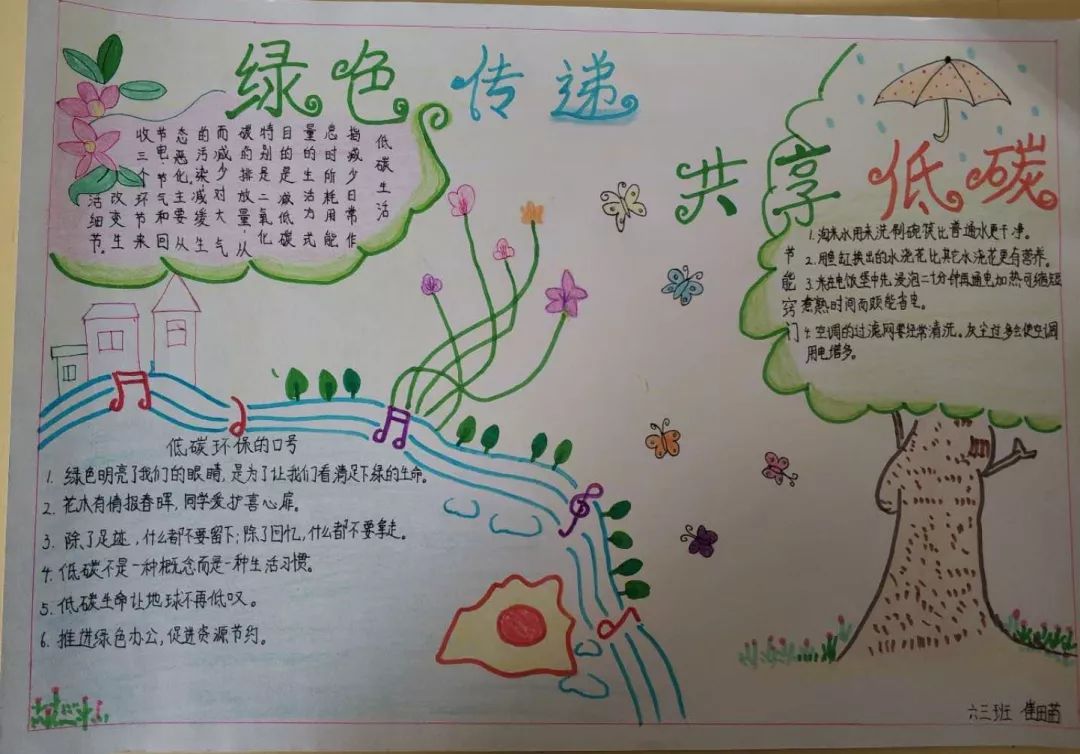 绿色传递
共享低碳
低碳生活
指减少日常作
息时所耗用能
量的生活方式
目的是减低碳
特别是二氧化
碳的排放量,从
而减少对大气
的污染.减缓生
态恶化.主要从
节电节气和回
收三个环节来
改变生
活细节。
节能窍门
1.淘米水用来洗刷碗筷比普通水更干净。
2.用鱼缸换出的水浇花比其它水浇花更有营养。
3.米在电饭煲中先浸泡二十分钟再通电加热可缩短
煮熟时间而颇能省电。
4.空调的过滤网要经常清洗。灰尘过多会使空调
用电增多。
低碳环保的口号
1. 绿色明亮了我们的眼睛,是为了让我们看满足下绿的生命。
2. 花木有情报春晖,同学爱护喜心扉。
3. 除了足迹,什么都不要留下;除了回忆,什么都不要拿走。
4. 低碳不是一种概念而是一种生活习惯。
5. 低碳生命让地球不再低叹。
6. 推进绿色办公,促进资源节约。
六三班 崔田苗